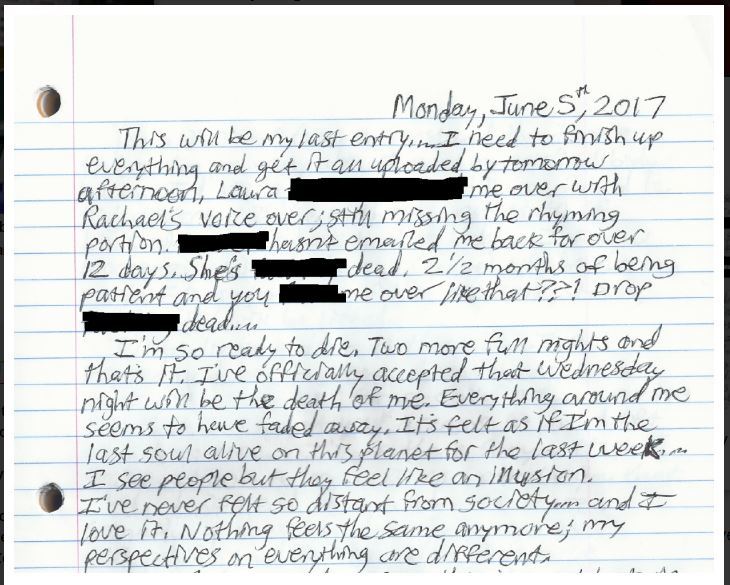 Monday, June 5th, 2017
This will be my last entry.... I need to finish up
everything and get it all uploaded by tomorrow
afternoon. Laura me over with
Rachael's voice over; still missing the rhyming
portion. hasn't emailed me back for over
12 days. She's dead. 2 1/2 months of being
patient and you me over like that??! Drop
dead....
I'm so ready to die. Two more full nights and
that's it. I've officially accepted that Wednesday
night will be the death of me. Everything around me
seems to have faded away. It's felt as if I'm the
last soul alive on this planet for the last week....
I see people but they feel like an illusion.
I've never felt so distant from society.... and I
love it. Nothing feels the same anymore; my
perspectives on everything are different.